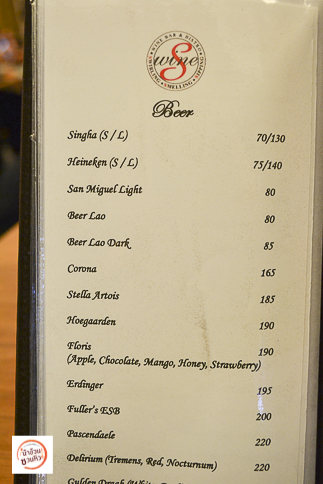 WINE BAR & BISTRO
S wine
SWIRLING • SMELLING • SIPPING
Beer
Singha (S / L) 70/130
Heineken (S / L) 75/140
San Miguel Light 80
Beer Lao 80
Beer Lao Dark 85
Corona 165
Stella Artois 185
Hoegaarden 190
Floris 190
(Apple, Chocolate, Mango, Honey, Strawberry)
Erdinger 195
Fuller's ESB 200
Pascendaele 220
Delirium (Tremens, Red, Nocturnum) 220
ป้าอ้วน
ชวนหิว